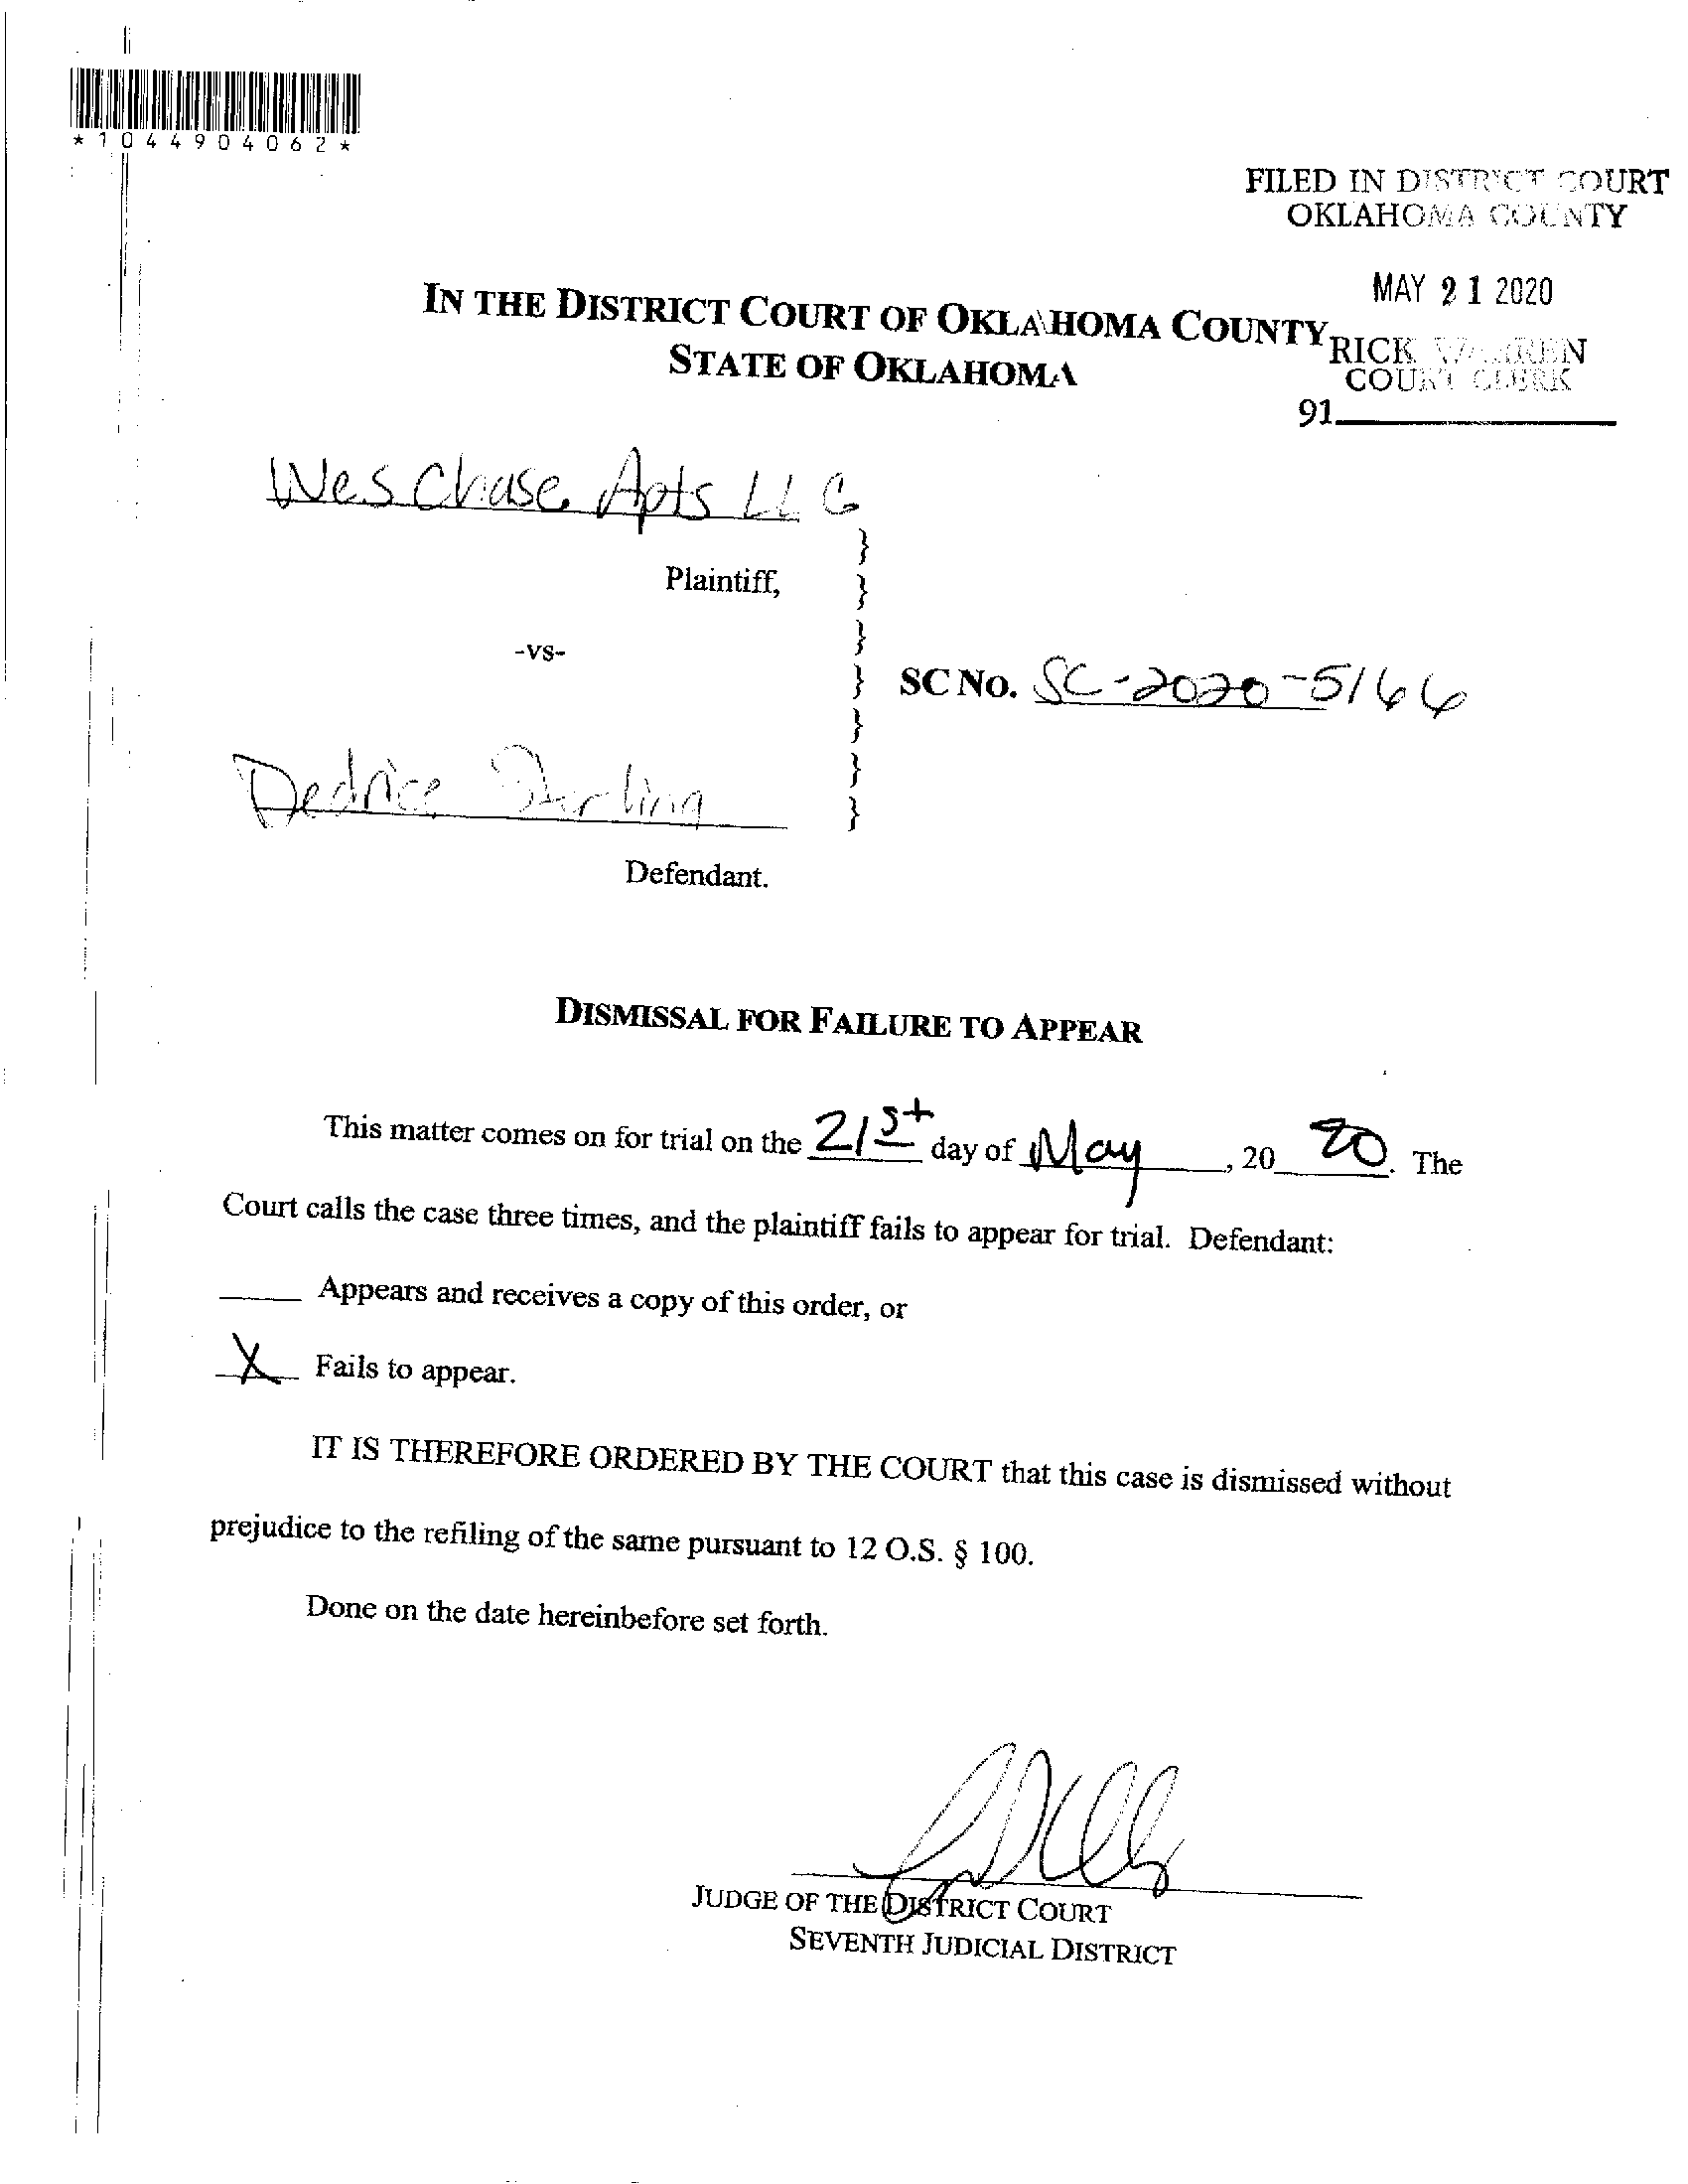 *1044904062*
FILED IN DISTRICT COURT
OKLAHOMA COUNTY
MAY 21 2020
RICK WARREN
COURT CLERK
91
IN THE DISTRICT COURT OF OKLAHOMA COUNTY
STATE OF OKLAHOMA
Wes Chase Apts LLC
}
Plaintiff, }
-vs- }
} SC NO. SC-2020-5166
}
Dedrice Sterling }
}
Defendant.
DISMISSAL FOR FAILURE TO APPEAR
This matter comes on for trial on the 21st day of May, 20 20. The
Court calls the case three times, and the plaintiff fails to appear for trial. Defendant:
____ Appears and receives a copy of this order, or
X Fails to appear.
IT IS THEREFORE ORDERED BY THE COURT that this case is dismissed without
prejudice to the refiling of the same pursuant to 12 O.S. § 100.
Done on the date hereinbefore set forth.
JUDGE OF THE DISTRICT COURT
SEVENTH JUDICIAL DISTRICT